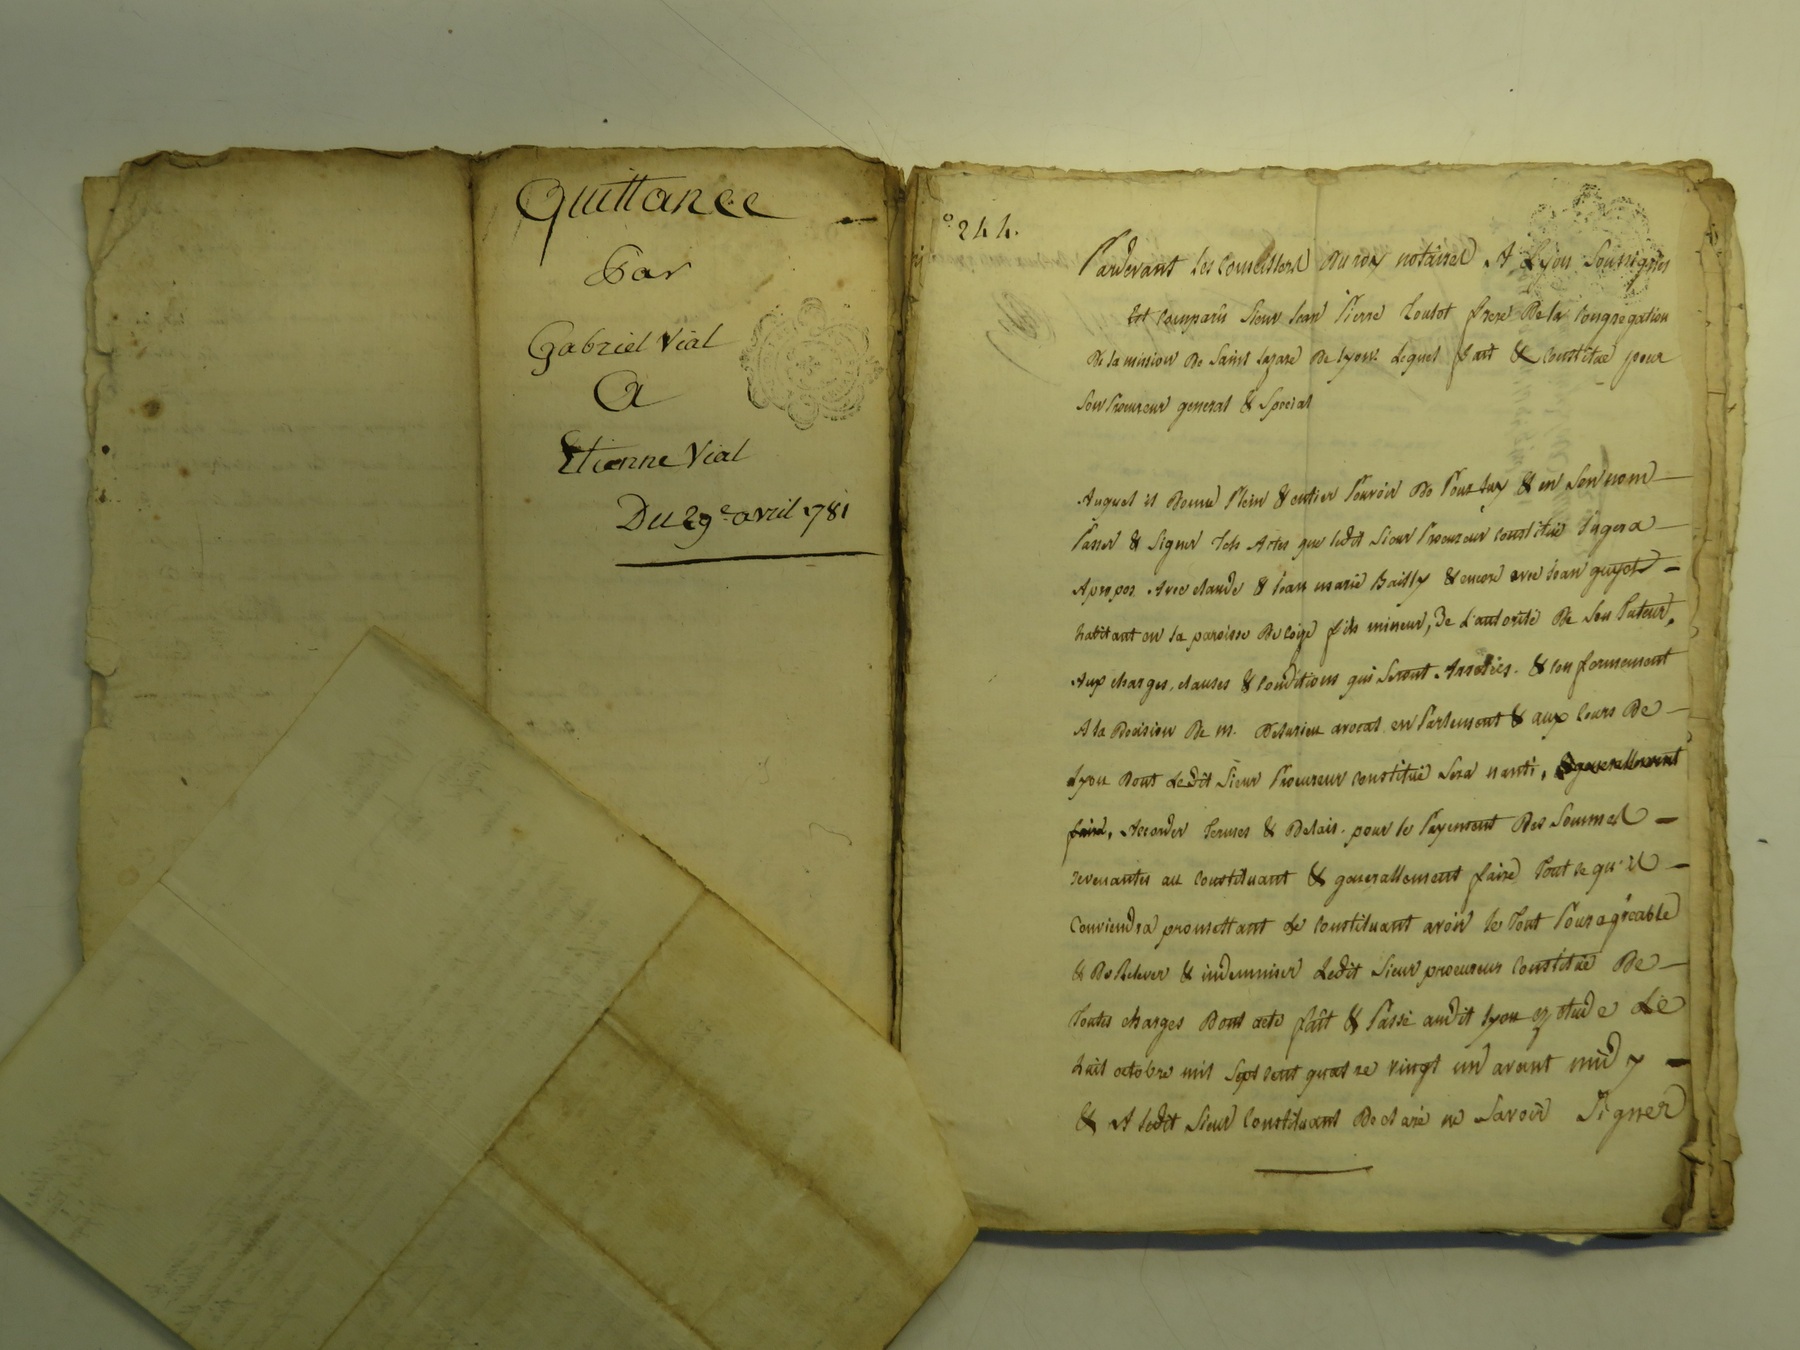 Quittance
Par
Gabriel Vial
A
Etienne Vial
Du 29e avril 1781
244.
Pardevant les Conseillers du roy notaires A Lyon Soussignés
Est Comparu Sieur Jean Pierre frere De la Congregation
De la mission De Saint Lazare De Lyon. Lequel fait & Constitue pour
Son Procureur general & Special
Auquel il Donne Plein & entier Pouvoir De Pour luy & en Son nom
Passer & Signer Tels Actes que ledit Sieur Procureur Constitué Jugera
Apropos Avec claude & Jean marie Bailly & encore avec Jean guyot
habitant en la paroisse De fils mineur, De L'autorité De Son Tuteur,
Aux charges, clauses & Conditions qui Seront Arretées. & Conformement
A la Decision De m. avocat en Parlement & aux Cours De
Lyon Dont Ledit Sieur Procureur Constitué Sera nanti, & generallement
faire, Accorder Termes & Delais pour le Payement Des Sommes
revenantes au Constituant & generallement faire Tout ce qu'il
Conviendra promettant Le Constituant avoir le Tout Pour agréable
& De Relever & indemniser Ledit Sieur procureur Constitué De
Toutes charges Dont acte fait & Passé audit Lyon ez etude Le
huit octobre mil Sept cent quatre vingt un avant midy
& A ledit Sieur Constituant Declaré ne Savoir Signer